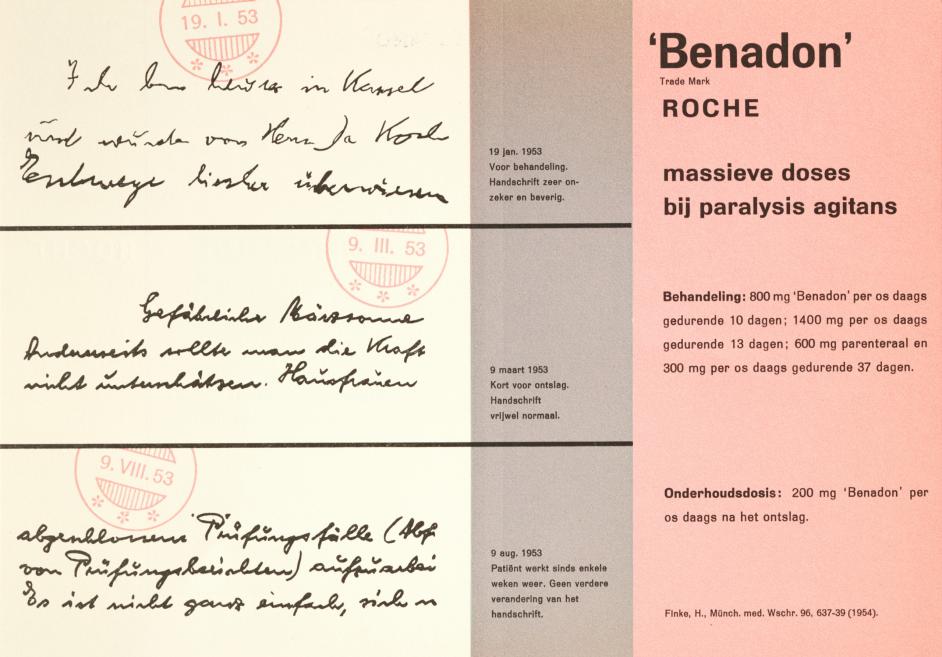 19. I. 53
Ich bin heute in Kassel
und wurde von Herrn Da Koch
Eschwege hierher überwiesen
19 jan. 1953
Voor behandeling.
Handschrift zeer on-
zeker en beverig.
9. III. 53
Gefährliche Märzsonne
Andererseits sollte man die Kraft
nicht unterschätzen. Hausfrauen
9 maart 1953
Kort voor ontslag.
Handschrift
vrijwel normaal.
9. VIII. 53
Prüfungsfälle (Abf
von Prüfungsberichten) aufzuarbei
Es ist nicht ganz einfach, sich
9 aug. 1953
Patiënt werkt sinds enkele
weken weer. Geen verdere
verandering van het
handschrift.
‘Benadon’
Trade Mark
ROCHE
massieve doses
bij paralysis agitans
Behandeling: 800 mg ‘Benadon’ per os daags
gedurende 10 dagen; 1400 mg per os daags
gedurende 13 dagen; 600 mg parenteraal en
300 mg per os daags gedurende 37 dagen.
Onderhoudsdosis: 200 mg ‘Benadon’ per
os daags na het ontslag.
Finke, H., Münch. med. Wschr. 96, 637-39 (1954).